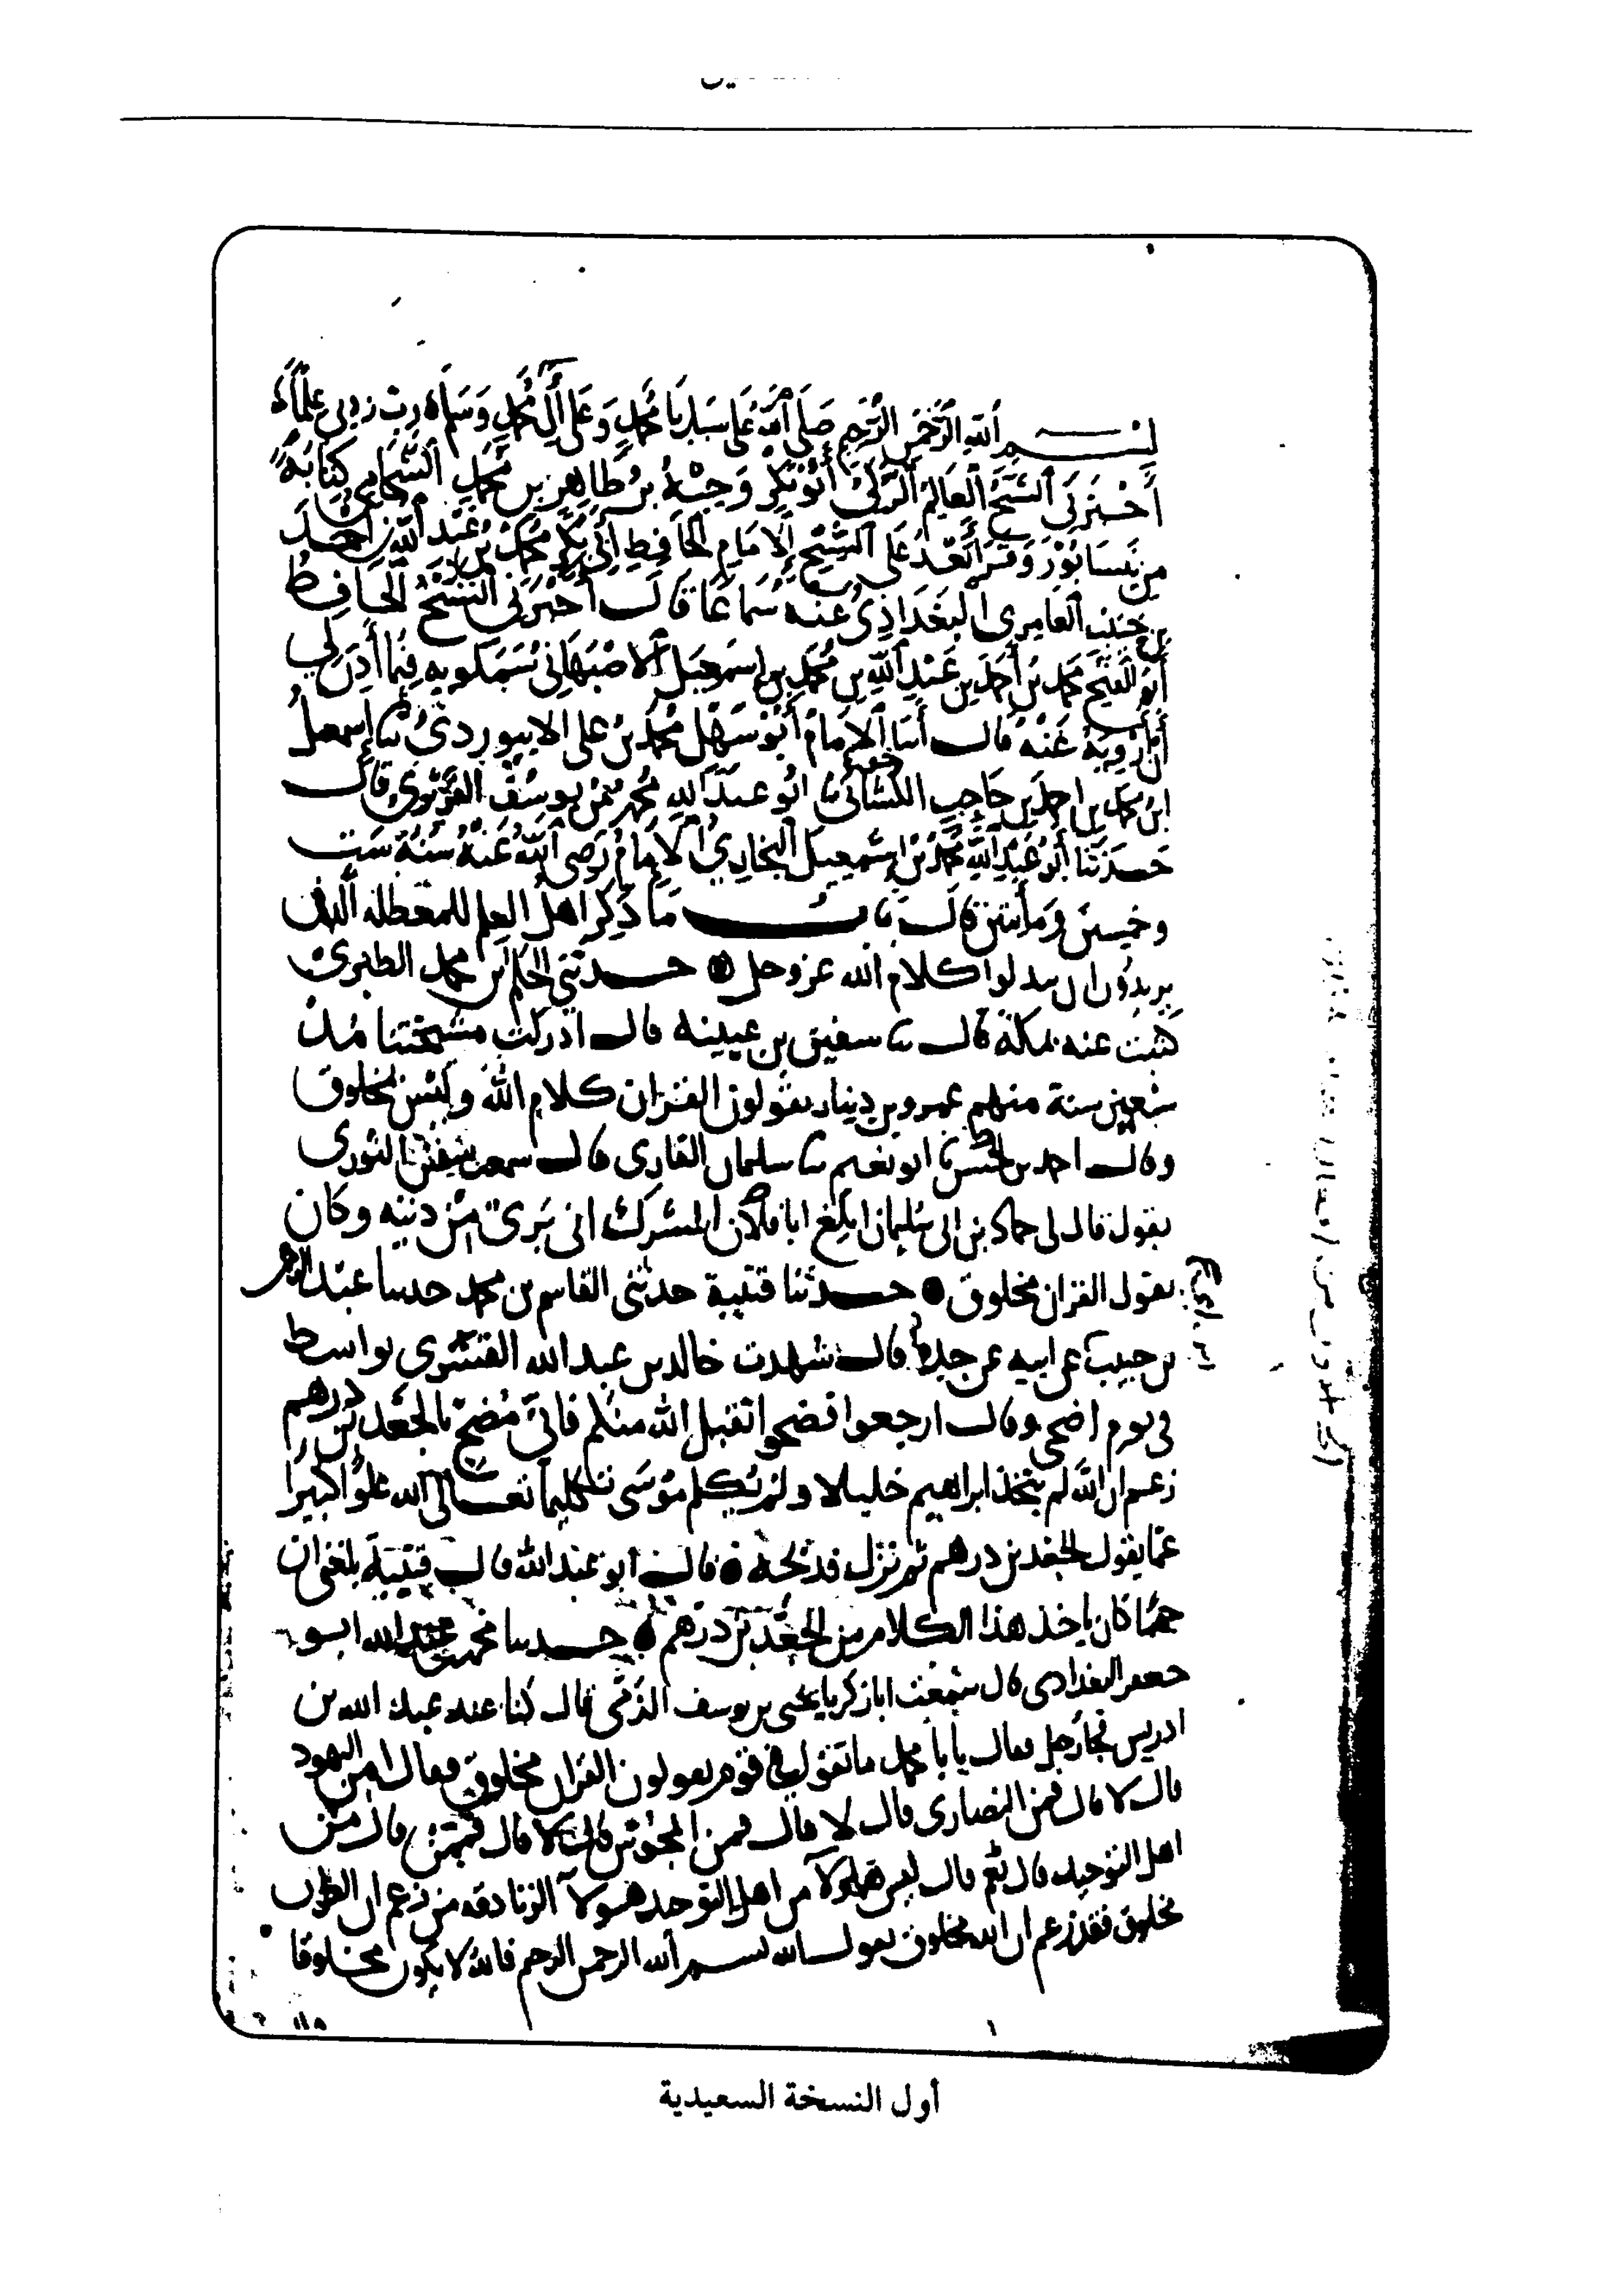 بســـم الله الرحمن الرحيم صلى الله على سيدنا محمد وعلى آل محمد وسلم رب زدني علما
أخبرني الشيخ العالم الزكي أبو بكر وجيه بن طاهر بن محمد الشحامي كتابة
من نيسابور وقرأ بعد على الشيخ الإمام الحافظ أبي بكر محمد بن عبد الله بن احمد
بن حبيب العامري البغداذي عنه سماعا قال أخبرني الشيخ الحافظ
أبو الفتح محمد بن أحمد بن عبد الله بن محمد بن إسمعيل الاصبهاني سمكويه فيما أذن لي
أن أرويه عنه قال أنبا الإمام أبو سهل محمد بن علي الابيوردي ثنا إسمعيل
ابن محمد بن احمد بن حاجب الكشاني نا ابو عبد الله محمد بن يوسف الفربري قال
حدثنا أبو عبد الله محمد بن إسمعيل البخاري الإمام رضي الله عنه سنة ست
وخمسين ومائتين قال باب ما ذكر اهل العلم للمعطلة الذين
يريدون ان يبدلوا كلام الله عز وجل حدثني الحكم ابن محمد الطبري
كتبت عنه بمكة قال ثنا سفين بن عيينة قال ادركت مشيختنا مذ
سبعين سنة منهم عمرو بن دينار يقولون القران كلام الله وليس بمخلوق
وقال احمد بن الحسن نا ابو نعيم ثنا سليمان القاري قال سمعت سفين الثوري
يقول قال لي حماد بن ابي سليمان ابلغ ابا فلان المشرك اني بريء من دينه وكان
يقول القران مخلوق حدثنا قتيبة حدثني القاسم بن محمد حدثنا عبد الرحمن
بن حبيب عن ابيه عن جده قال شهدت خالد بن عبد الله القسري بواسط
في يوم اضحى وقال ارجعوا فضحوا تقبل الله منكم فاني مضح بالجعد بن درهم
زعم ان الله لم يتخذ ابراهيم خليلا ولم يكلم موسى تكليما تعالى الله علوا كبيرا
عما يقول الجعد بن درهم ثم نزل فذبحه قال أبو عبد الله قال قتيبة بلغني ان
جهما كان ياخذ هذا الكلام من الجعد بن درهم حدثنا محمد بن عبد الله ابو
جعفر البغدادي قال سمعت ابا زكريا يحيى بن يوسف الذمي قال كنا عند عبد الله بن
ادريس فجاء رجل فقال يا با محمد ما تقول في قوم يقولون القران مخلوق فقال امن اليهود
قال لا قال فمن النصارى قال لا قال فمن المجوس قال لا قال فممن قال من
اهل التوحيد قال نعم قال ليس هؤلاء من اهل التوحيد هؤلاء الزنادقة من زعم ان القران
مخلوق فقد زعم ان الله مخلوق يقول الله بسم الله الرحمن الرحيم فالله لا يكون مخلوقا
١
أول النسخة السعيدية